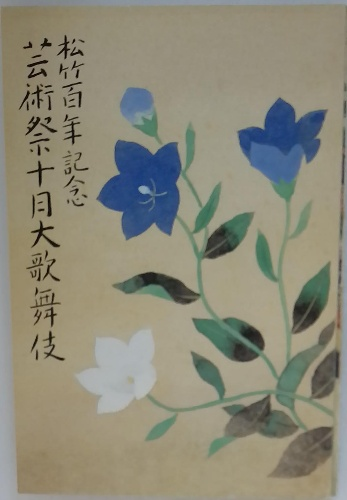 松竹百年記念
芸術祭十月大歌舞伎